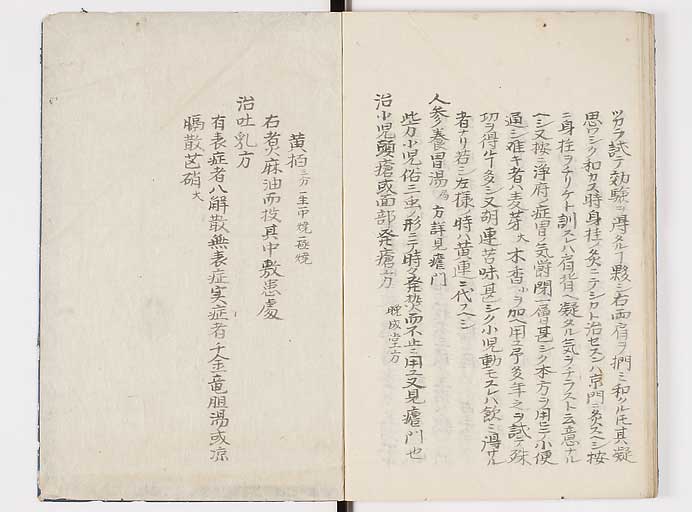 ツカラ試テ効験ヲ得タルヿ夥シ右両肩ヲ捫ミ和ルノ後其凝
思ワシク和カス時身柱ノ灸ニテシカト治セスンハ京門ニ灸スヘシ按
ニ身柱ヲチリケト訓スレハ肩背ヘ凝タル気ヲチラスト云意ナル
ヘシ又按ニ浄府ノ症胃ノ気欝閉一層甚シク本方ヲ用ヒ小便
通シ難キ者ハ麦芽大木香小ヲ加ヘ用ユ予多年之ヲ試テ殊
功ヲ得ルヿ多シ又胡連苦味甚シク小児動モスレハ飲ミ得サル
者ナリ若シ左様ノ時ハ黄連ニ代スヘシ
人参養胃湯 方詳見瘧門
此方小児俗三虫ノ形ニテ時々発熱而不止ニ用ユ又見瘧門也
治小児頭瘡或面部発瘡方 晩成堂方
黄柏 三分一生 一中焼 一極焼
右煮麻油而投其中敷患處
治吐乳方
有表症者ハ解散無表症実症者千金竜胆湯或凉
膈散芒硝大